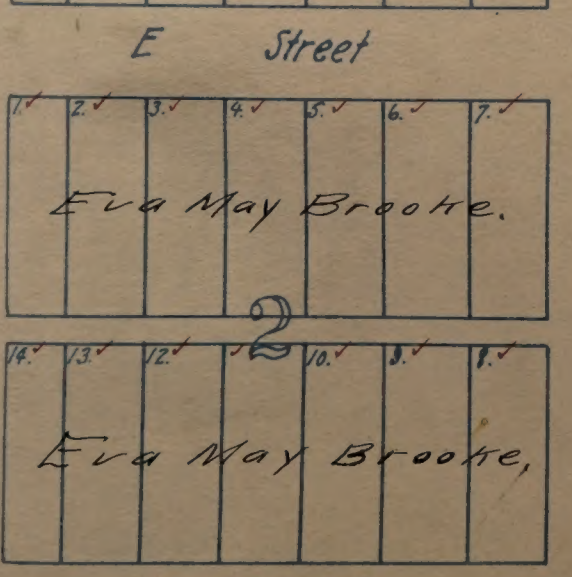 E Street
1. ✓ 2. ✓ 3. ✓ 4. ✓ 5. ✓ 6. ✓ 7. ✓
Eva May Brooke.
2
14. ✓ 13. ✓ 12. ✓ ✓ 10. ✓ 9. ✓ 8. ✓
Eva May Brooke,